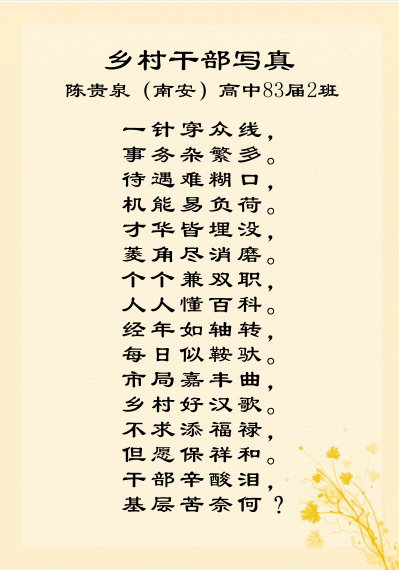 乡村干部写真
陈贵泉（南安）高中83届2班
一针穿众线，
事务杂繁多。
待遇难糊口，
机能易负荷。
才华皆埋没，
菱角尽消磨。
个个兼双职，
人人懂百科。
经年如轴转，
每日似鞍驮。
市局嘉丰曲，
乡村好汉歌。
不求添福禄，
但愿保祥和。
干部辛酸泪，
基层苦奈何？